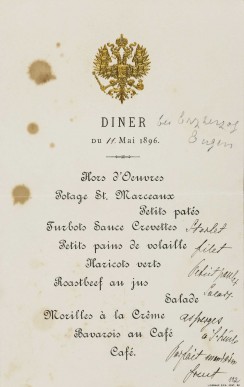 DINER
bei Erzherzog
Eugen
DU 11. MAI 1896.
Hors d'Oeuvres
Potage St. Marceaux
Petits patés
Turbots Sauce Crevettes
Petits pains de volaille filet
Haricots verts
Roastbeef au jus
Salade
Salade
Morilles à la Crème asperges
Bavarois au Café
Café.